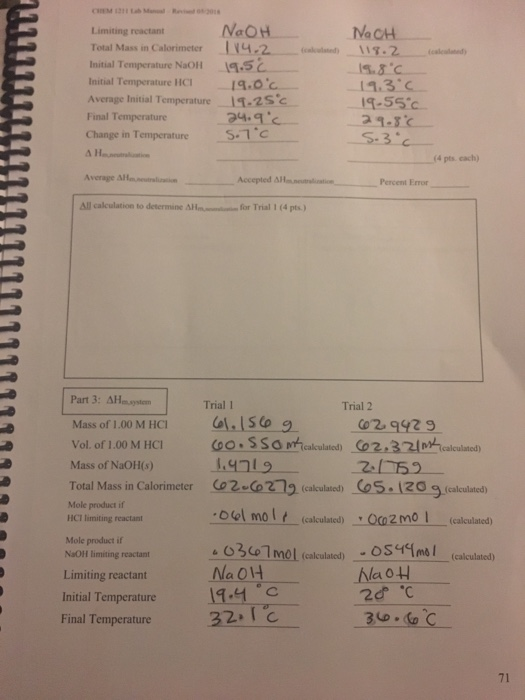 CHEM 1211 Lab Manual Revised 05/2016
Limiting reactant NaOH NaOH
Total Mass in Calorimeter 114.2 (calculated) 118.2 (calculated)
Initial Temperature NaOH 19.5°C 19.8°C
Initial Temperature HCl 19.0°C 19.3°C
Average Initial Temperature 19.25°C 19.55°C
Final Temperature 24.9°C 24.8°C
Change in Temperature 5.7°C 5.3°C
Δ Hneutralization (4 pts. each)
Average ΔHneutralization Accepted ΔHneutralization Percent Error
All calculation to determine ΔHneutralization for Trial 1 (4 pts.)
Part 3: ΔHrxn,system
Trial 1 Trial 2
Mass of 1.00 M HCl 61.156 g 62.9429
Vol. of 1.00 M HCl 60.550 ml (calculated) 62.321 ml (calculated)
Mass of NaOH(s) 1.471g 2.175g
Total Mass in Calorimeter 62.627g (calculated) 65.120g (calculated)
Mole product if
HCl limiting reactant .061 mol (calculated) .062mol (calculated)
Mole product if
NaOH limiting reactant .0367mol (calculated) .0544mol (calculated)
Limiting reactant NaOH NaOH
Initial Temperature 19.4 °C 20 °C
Final Temperature 32.1°C 36.6°C
71